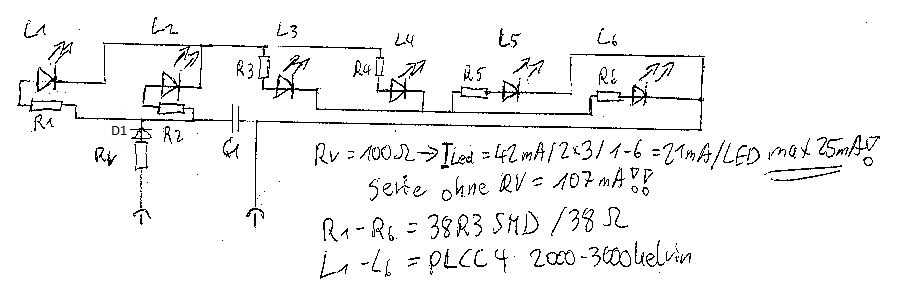 L1 L2 L3 L4 L5 L6
R3 R4 R5 R6
R1 D1 R2 C1
RV
RV = 100Ω → ILed = 42mA/2x3/1-6 = 21mA/LED max 25mA!
Serie ohne RV = 107mA!!
R1-R6 = 38R3 SMD / 38 Ω
L1-L6 = PLCC4 2000-3000kelvin